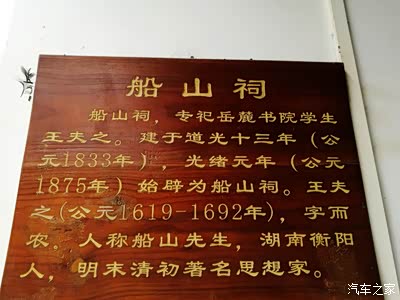 船山祠
船山祠，专祀岳麓书院学生
王夫之。建于道光十三年（公
元1833年），光绪元年（公元
1875年）始辟为船山祠。王夫
之(公元1619-1692年)，字而
农，人称船山先生，湖南衡阳
人，明末清初著名思想家。
汽车之家